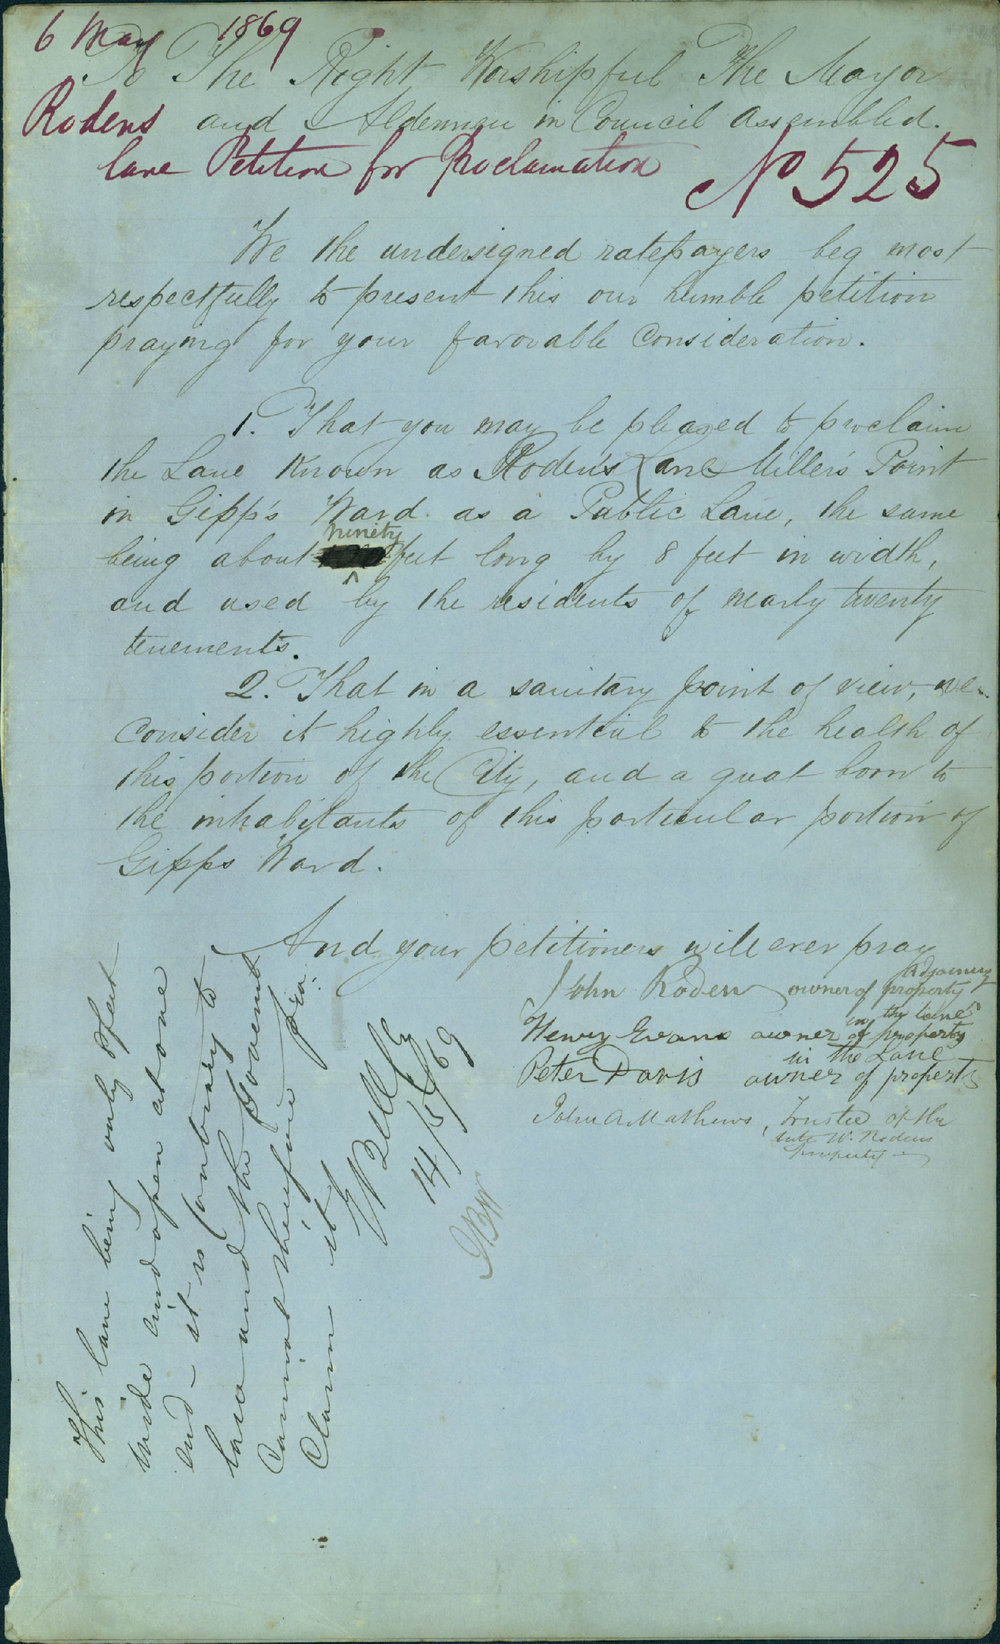 6 May 1869
To The Right Worshipful The Mayor
Rodens and Aldermen in Council Assembled.
lane Petition for Proclamation No 525
We the undersigned ratepayers beg most
respectfully to present this our humble petition
praying for your favorable consideration.
1. That you may be pleased to proclaim
the Lane Known as Roden's Lane Miller's Point
in Gipp's Ward as a Public Lane, the same
ninety
being about feet long by 8 feet in width,
and used by the residents of nearly twenty
tenements.
2. That in a sanitary point of view, we
consider it highly essential to the health of
this portion of the City, and a great boon to
the inhabitants of this particular portion of
Gipps Ward.
And your petitioners will ever pray
John Roden owner of Adjoining property
Henry Evans owner of property in the lane
Peter Davis owner of property in the Lane
John A Mathews, Trustee of the
late W. Rodens
property
This lane being only 8 feet
wide and open at one
end - it is contrary to
law and the Government
cannot therefore pro:
claim it
E Bell CE
14/5/69